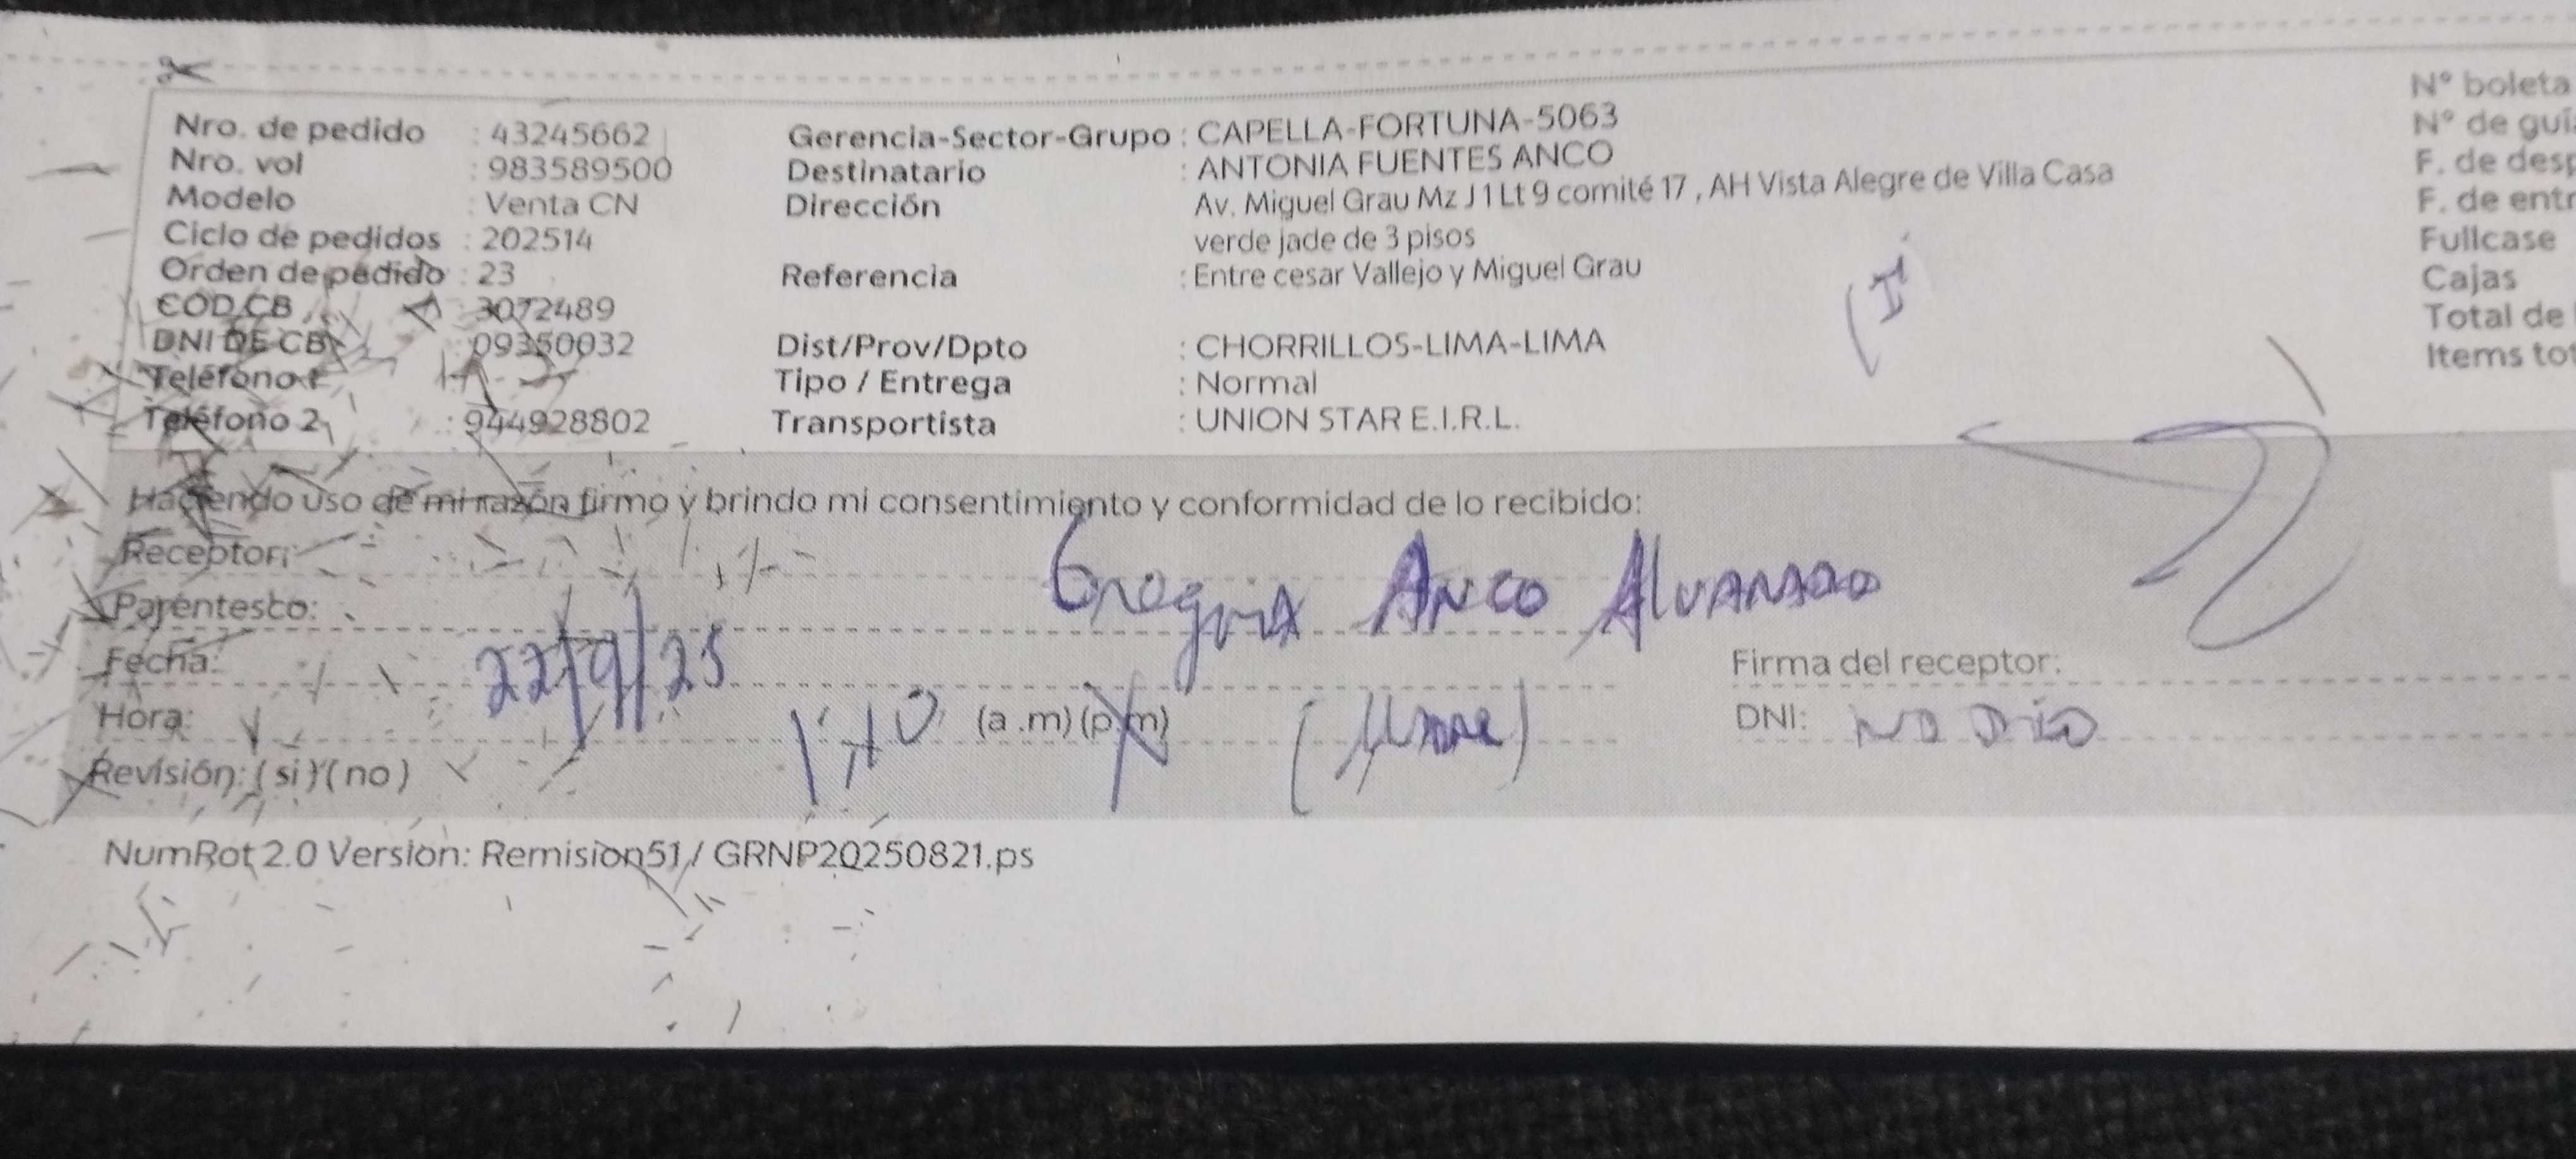 Nro. de pedido : 43245662
Nro. vol : 983589500
Modelo : Venta CN
Ciclo de pedidos : 202514
Orden de pedido : 23
COD.CB : 3072489
DNI DE CB : 09350032
Teléfono 1
Teléfono 2 : 944928802
Gerencia-Sector-Grupo : CAPELLA-FORTUNA-5063
Destinatario : ANTONIA FUENTES ANCO
Dirección : Av. Miguel Grau Mz J 1 Lt 9 comité 17 , AH Vista Alegre de Villa Casa
verde jade de 3 pisos
Referencia : Entre cesar Vallejo y Miguel Grau
Dist/Prov/Dpto : CHORRILLOS-LIMA-LIMA
Tipo / Entrega : Normal
Transportista : UNION STAR E.I.R.L.
N° boleta
N° de guía
F. de desp
F. de entr
Fullcase
Cajas
Total de
Items tot
Haciendo uso de mi razón firmo y brindo mi consentimiento y conformidad de lo recibido:
Receptor:
Parentesco: Anco Alvarado
Fecha: 22/9/25
Firma del receptor:
Hora: (a .m) (p.m)
DNI: NO DIO
Revisión: ( si ) ( no )
NumRot 2.0 Version: Remision51 / GRNP20250821.ps